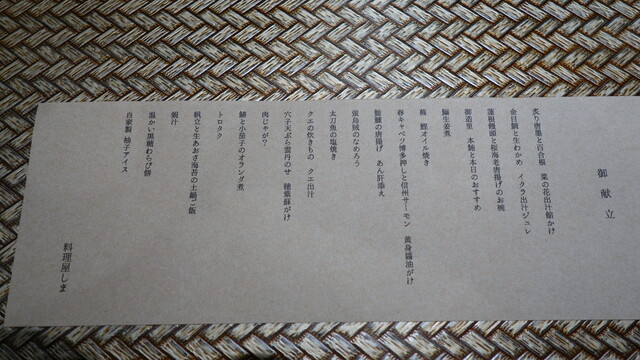 御献立
炙り唐墨と百合根 菜の花出汁餡かけ
金目鯛と生わかめ イクラ出汁ジュレ
蓮根饅頭と桜海老唐揚げのお椀
御造里 本鮪と本日のおすすめ
鰯生姜煮
蕪 鰹オイル焼き
春キャベツ博多押しと信州サーモン 黄身醤油がけ
鮟鱇の唐揚げ あん肝添え
蛍烏賊のなめろう
太刀魚の塩焼き
クエの炊きもの クエ出汁
穴子天ぷら雲丹のせ 穂紫蘇がけ
肉じゃが?
鰊と小茄子のオランダ煮
トロタク
帆立と生あおさ海苔の土鍋ご飯
蜆汁
温かい黒糖わらび餅
自家製 柚子アイス
料理屋しま